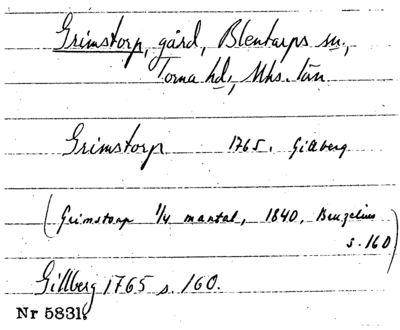 Grimstorp, gård, Blentarps sn.,
Torna hd., Mhs. län
Grimstorp 1765. Gillberg
(Grimstorp 1/4 mantal, 1840, Bruzelius
s. 160)
Gillberg 1765 s. 160.
Nr 5831.